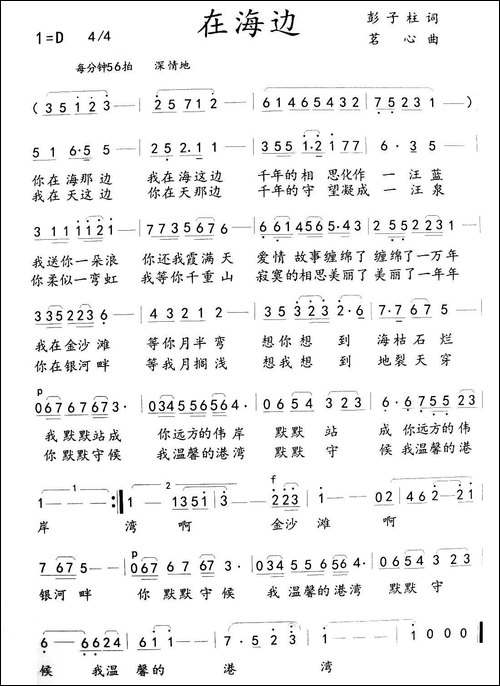 在海边
1=D 4/4
彭子柱 词
茗心 曲
每分钟56拍 深情地
(3 5 1 2 3 - | 2 5 7 1 2 - - - | 6 1 4 6 5 4 3 2 | 7 5 2 3 1 -)
5 1 6·5 5 | 5 5 2·1 1 - | 3 5 5 5 1·2 1 7 7 | 6·3 5 -
你在海那边 我在海这边 千年的相 思化作 一汪蓝
我在天这边 你在天那边 千年的守 望凝成 一汪泉
3 1 1 1 1 2 1 | 7 7 3 5 6 7 6 - | 6 6 1 4 5 6 5·4 3 | 2 5 5 2 2 3 1 -
我送你一朵浪 你还我霞满天 爱情 故事缠绵了 缠绵了一万年
你柔似一弯虹 我等你千重山 寂寞的相思美丽了 美丽了一年年
3 3 5 2 2 3 1 - | 3 3 5 6 7 6 - | 5 5 3 2 2 - | 7·7 6 7 5 -
我在金沙滩 等你月半弯 想你想到 海枯石烂
你在银河畔 等我月搁浅 想我想到 地裂天穿
p
0 6 7 6 7 6 7 3· | 0 3 4 5 5 6 5 6 4 | 0 6 5 4 3 2 3 | 6·6 7 5 5 2 3
我默默站成 你远方的伟岸 默默站 成 你远方的伟
你默默守候 我温馨的港湾 默默守 候 我温馨的港
1 2 f
1 - - - :| 1 - 1 3 5 1 | 3· 2 2 3 | 1 - - 0 2 | 4 6 2 - 2 1
岸 湾啊 金沙滩 啊
p
7 6 7 5 - - | 0 6 7 6 7 6 7 3· | 0 3 4 5 5 6 5 6 4 | 0 6 5 4 3 2 3
银河畔 你默默守候 我温馨的港湾 默默守
6 - 6 6 2 4 | 6 1 1 - - | 7· 5 2 3 | 1 - - - | 1 0 0 0
候 我温馨的 港 湾